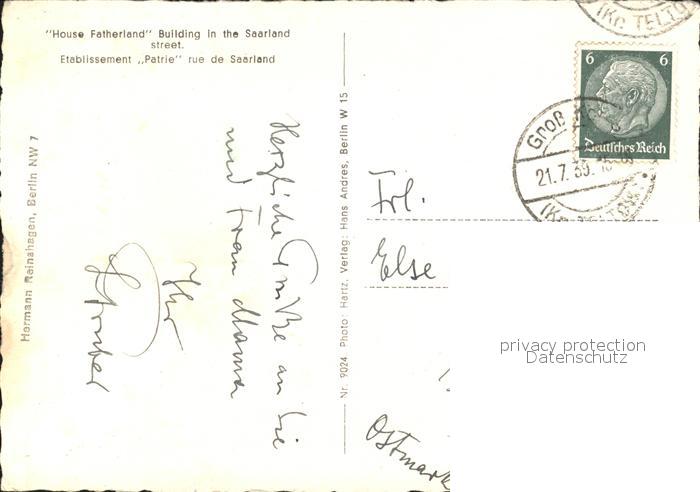 "House Fatherland" Building in the Saarland
street.
Etablissement „Patrie" rue de Saarland
Hermann Rainshagen, Berlin NW 7
Herzliche Grüße an Sie
und Frau Mama
Ihr
Nr. 9024 Photo: Hartz, Verlag: Hans Andres, Berlin W 15
(Kr. TELTO
6 6
Deutsches Reich
Groß
21.7.39.
(Kr. TELTOW)
Frl.
Else
privacy protection
Datenschutz
Ostmark